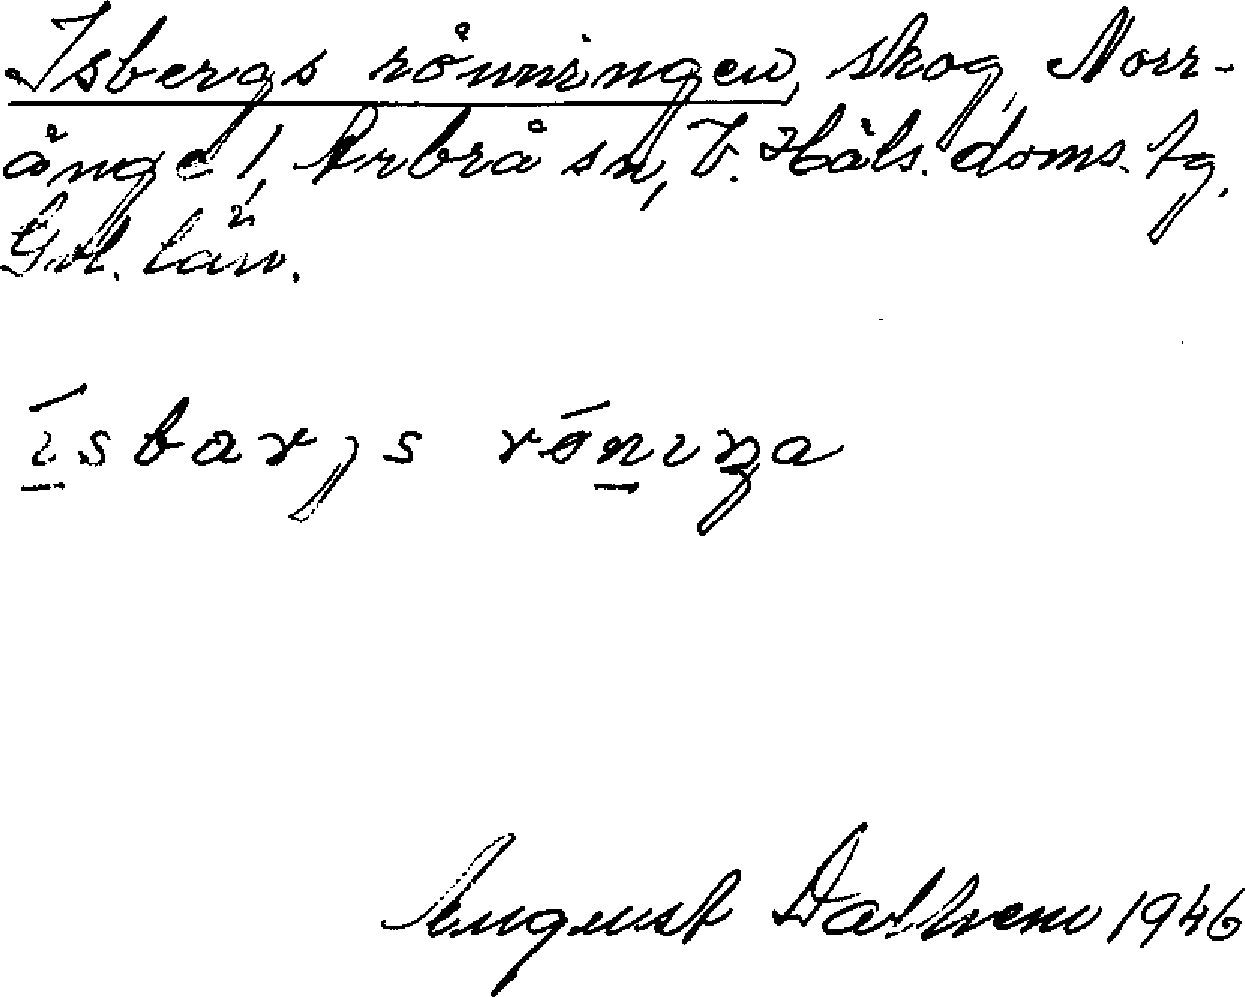 Isbergs rönningen, skog, Norr-
änge 1, Arbrå sn, V. Häls. doms. tg.
Gvl. län.
ísbarjs rǿnıŋa
August Dalhem 1946